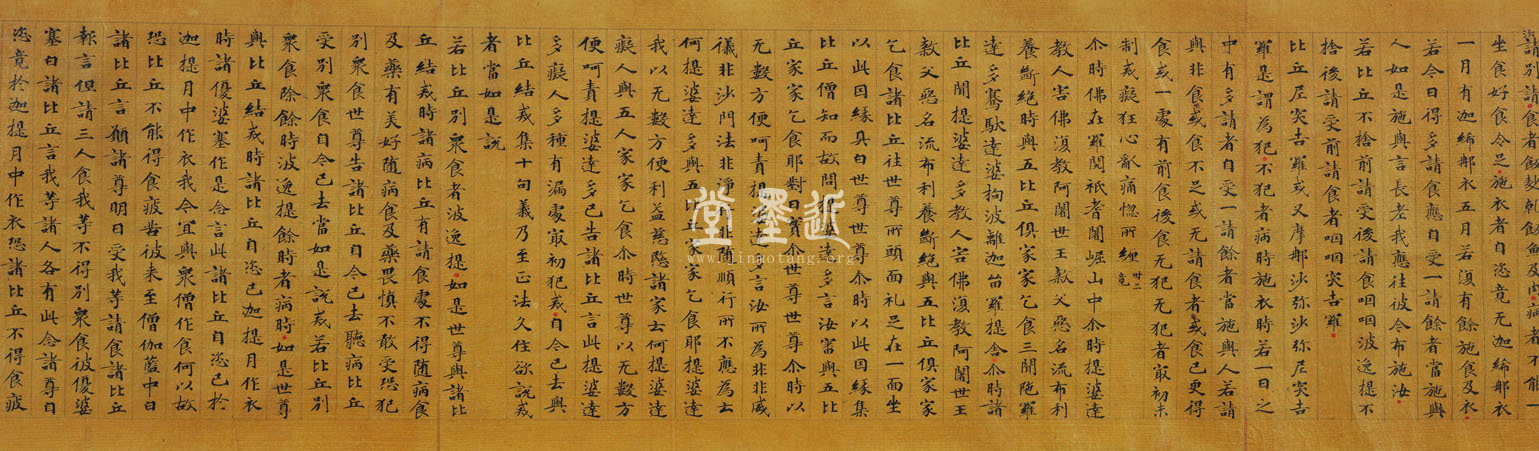 請別請者飯麨乾飯魚及肉病者
坐食好食令足施衣者自恣竟无迦絺郍衣
一月有迦絺郍衣五月若復有餘施食及衣
若今日得多請食應自受一請餘者當施與
人如是施與言長老我應往彼今布施汝
若比丘不捨前請受後請食咽咽波逸提不
捨後請受前請食者咽咽突吉羅
比丘尼突吉羅式叉摩郍沙弥沙弥尼突吉
羅是謂為犯不犯者病時施衣時若一日之
中有多請者自受一請餘者當施與人若請
與非食或食不足或无請食者或食已更得
食或一處有前食後食无犯无犯者㝡初未
制戒癡狂心亂痛惱所纏 卅二竟
尒時佛在羅閱祇耆闍崛山中尒時提婆達
教人害佛復教阿闍世王煞父惡名流布利
養斷絶時與五比丘俱家家乞食三聞陁羅
達多騫馱達婆拘波離迦留羅提舍尒時諸
比丘聞提婆達多教人害佛復教阿闍世王
煞父惡名流布利養斷絶與五比丘俱家家
乞食諸比丘往世尊所頭面礼足在一面坐
以此因緣具白世尊世尊尒時以此因緣集
比丘僧知而故問提婆達多言汝審與五比
丘家家乞食耶對曰實尒世尊世尊尒時以
无數方便呵責提婆達多言汝所為非非威
儀非沙門法非淨行非隨順行所不應為云
何提婆達多與五比丘家家乞食耶提婆達
我以无數方便利益慈愍諸家云何提婆達
癡人與五人家家乞食尒時世尊以无數方
便呵責提婆達多已告諸比丘言此提婆達
多癡人多種有漏處㝡初犯戒自今已去與
比丘結戒集十句義乃至正法久住欲說戒
者當如是說
若比丘別衆食者波逸提如是世尊與諸比
丘結戒時諸病比丘有請食處不得隨病食
及藥有美好隨病食及藥畏慎不敢受恐犯
別衆食世尊告諸比丘自今已去聽病比丘
受別衆食自今已去當如是說戒若比丘別
衆食除餘時波逸提餘時者病時如是世尊
與比丘結戒時諸比丘自恣已迦提月作衣
時諸優婆塞作是念言此諸比丘自恣已於
迦提月中作衣我今宜與衆僧作食何以故
恐比丘不能得食疲苦彼来至僧伽藍中白
諸比丘言願諸尊明日受我等請食諸比丘
報言但請三人食我等不得別衆食彼優婆
塞白諸比丘言我等諸人各有此念諸尊自
恣竟於迦提月中作衣恐諸比丘不得食疲